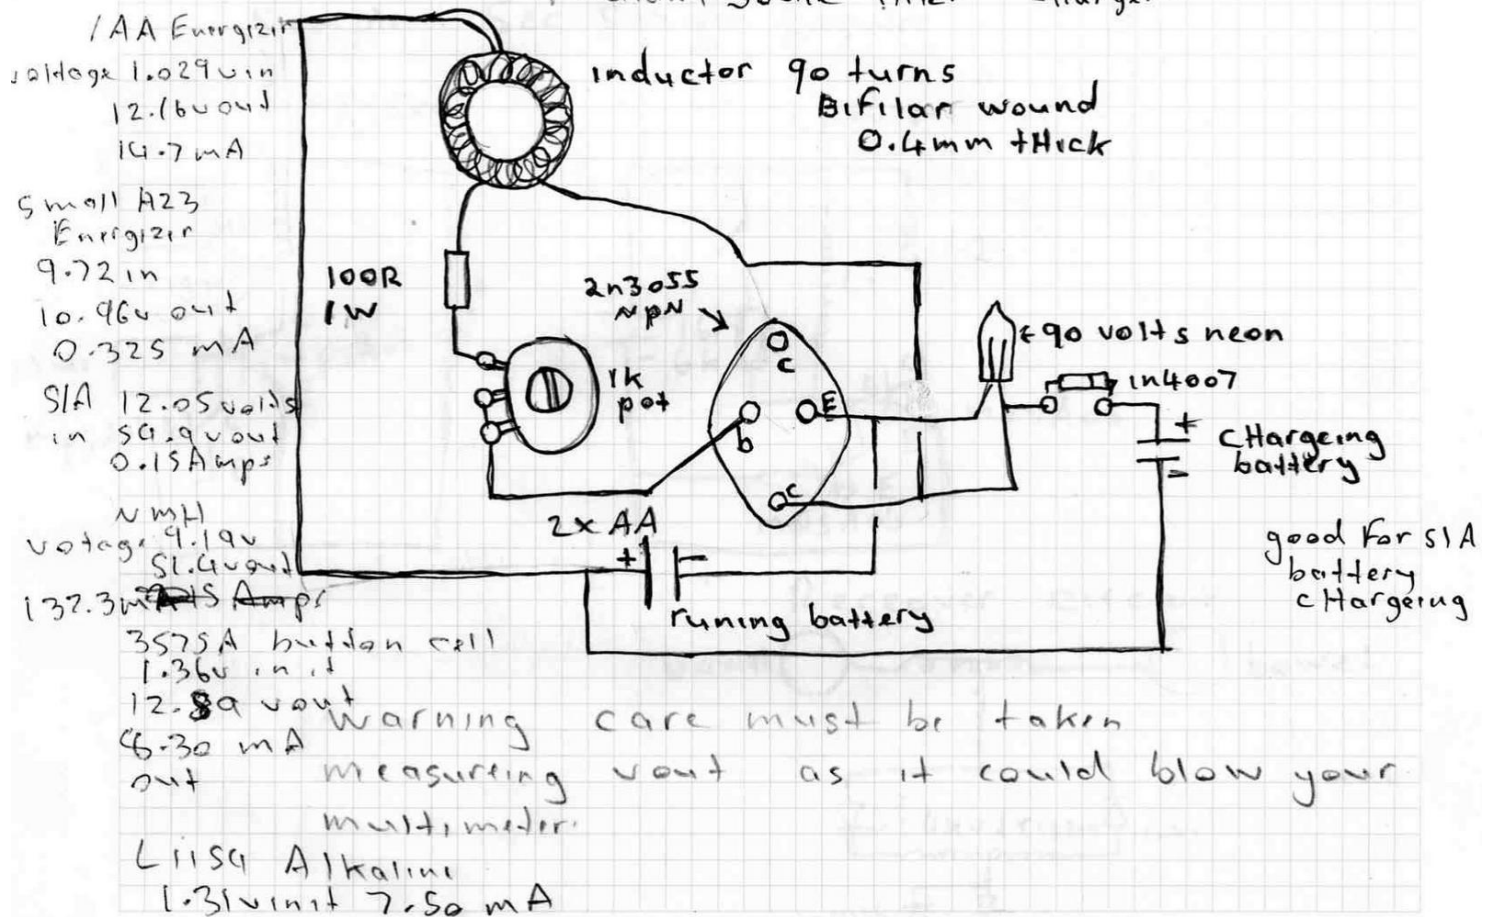 charger
1AA Energizer
voltage 1.029v in
12.16v out
14.7 mA
Small A23
Energizer
9.72 in
10.96v out
0.325 mA
SlA 12.05 volts
in 59.9v out
0.15 Amps
NMH
votage 9.19v
51.4v out
132.3mA
3575A button cell
1.36v in it
vout
8.30 mA
out
Alkaline
1.31v in it 7.50 mA
inductor 90 turns
Bifilar wound
0.4mm tHick
100R
1W
1k
pot
2n3055
NPN
c
b
E
c
←90 volts neon
1n4007
+
-
cHargeing
battery
2x AA
+
-
runing battery
good for SlA
battery
cHargeing
Warning care must be taken
measureing vout as it could blow your
multimeter.